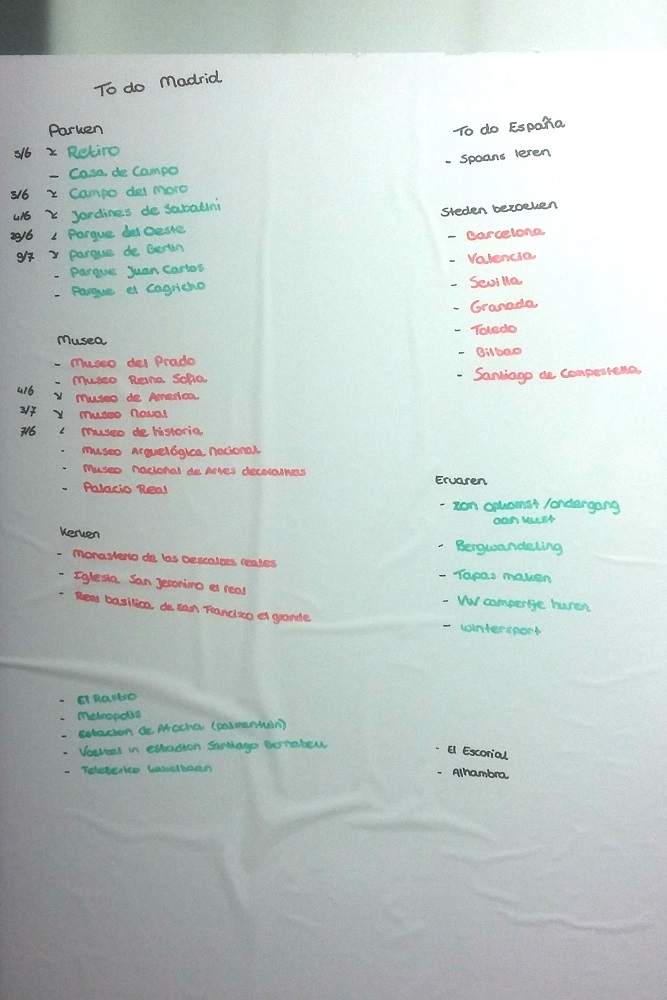 To do Madrid
Parken
5/6 x Retiro
- Casa de Campo
5/6 x Campo del Moro
4/6 x Jardines de Sabatini
29/6 x Parque del Oeste
9/7 x Parque de Berlin
- Parque Juan Carlos
- Parque el Capricho
Musea
- Museo del Prado
- Museo Reina Sofia
4/6 x Museo de America
3/7 x Museo Naval
7/6 x Museo de historia
- Museo Arquelógica Nacional
- Museo Nacional de Artes decorativas
- Palacio Real
Kerken
- Monasterio de las Descalzes reales
- Iglesia San Jeronimo el real
- Real basilica de San Francisco el grande
- El Rastro
- Metropolis
- Estacion de Atocha (palmentuin)
- Voetbal in estadion Santiago Bernabeu
- Teleferico kabelbaan
To do España
- Spaans leren
Steden bezoeken
- Barcelona
- Valencia
- Sevilla
- Granada
- Toledo
- Bilbao
- Santiago de Compestella
Ervaren
- zon opkomst/ondergang
aan kust
- Bergwandeling
- Tapas maken
- VW campertje huren
- wintersport
- El Escorial
- Alhambra